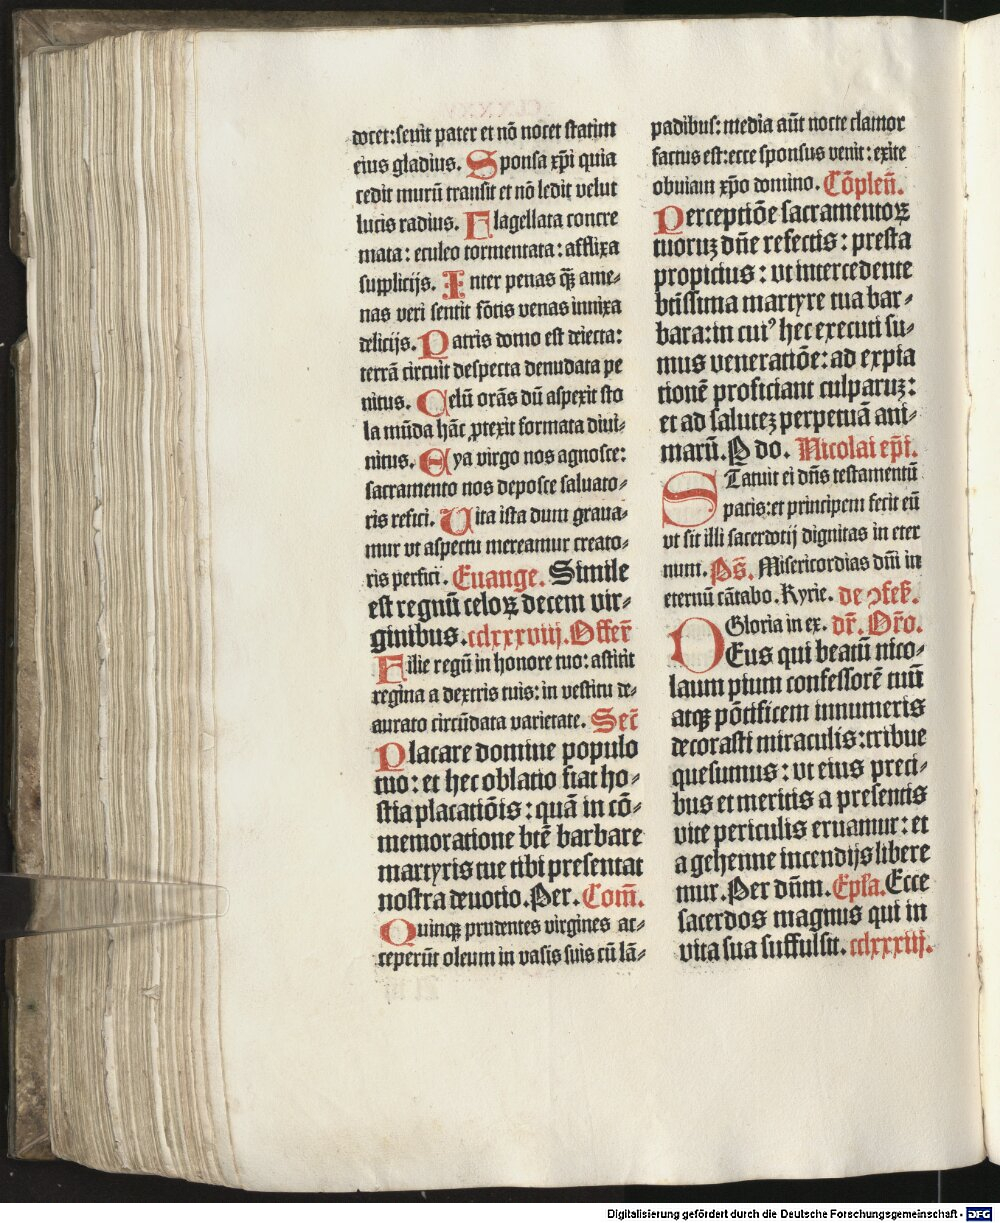 docet:seuit pater et nō nocet statim
eius gladius. Sponsa xp̄i quia
cedit murū transit et nō ledit velut
lucis radius. Flagellata concre
mata: eculeo tormentata: afflixa
supplicijs. Inter penas q̄ꝫ ame⸗
nas veri sentit fōtis venas innixa
delicijs. Patris domo est deiecta:
terrā circuit despecta denudata pe
nitus. Celū orās dū aspexit sto
la mūda hāc ꝓtexit formata diui⸗
nitus. Eya virgo nos agnosce:
sacramento nos deposce saluato⸗
ris refici. Vita ista dum graua⸗
mur vt aspectu mereamur creato⸗
ris perfici. Euange. Simile
est regnū celoꝝ decem vir⸗
ginibus. cclxxxviij. Offerī
Filie regū in honore tuo: astitit
regina a dextris tuis: in vestitu de⸗
aurato circūdata varietate. Sec̄
Placare domine populo
tuo: et hec oblatio fiat ho⸗
stia placatiōis: quā in cō⸗
memoratione btē barbare
martyris tue tibi presentat
nostra deuotio. Per. Com̄.
Quinqꝫ prudentes virgines ac⸗
ceperūt oleum in vasis suis cū lā⸗
padibus: media aūt nocte clamor
factus est: ecce sponsus venit: exite
obuiam xp̄o domino. Cōplen̄.
Perceptiōe sacramentoꝝ
tuoruꝫ dn̄e refectis: presta
propicius: vt intercedente
btīssima martyre tua bar⸗
bara: in cuiꝰ hec executi su⸗
mus veneratiōe: ad expia
tionē proficiant culparuꝫ:
et ad saluteꝫ perpetuā ani⸗
marū. P do. Nicolai ep̄i.
STatuit ei dn̄s testamentū
pacis: et principem fecit eū
vt sit illi sacerdotij dignitas in eter
num. Ps̄. Misericordias dn̄i in
eternū cātabo. Kyrie. de ꝯfes̄.
Gloria in ex. dr̄. Or̄o.
DEus qui beatū nico⸗
laum pium confessorē tuū
atqꝫ pōtificem innumeris
decorasti miraculis: tribue
quesumus: vt eius preci⸗
bus et meritis a presentis
vite periculis eruamur: et
a gehenne incendijs libere
mur. Per dn̄m. Epl̄a. Ecce
sacerdos magnus qui in
vita sua suffulsit. cclxxxiij.
Digitalisierung gefördert durch die Deutsche Forschungsgemeinschaft - DFG